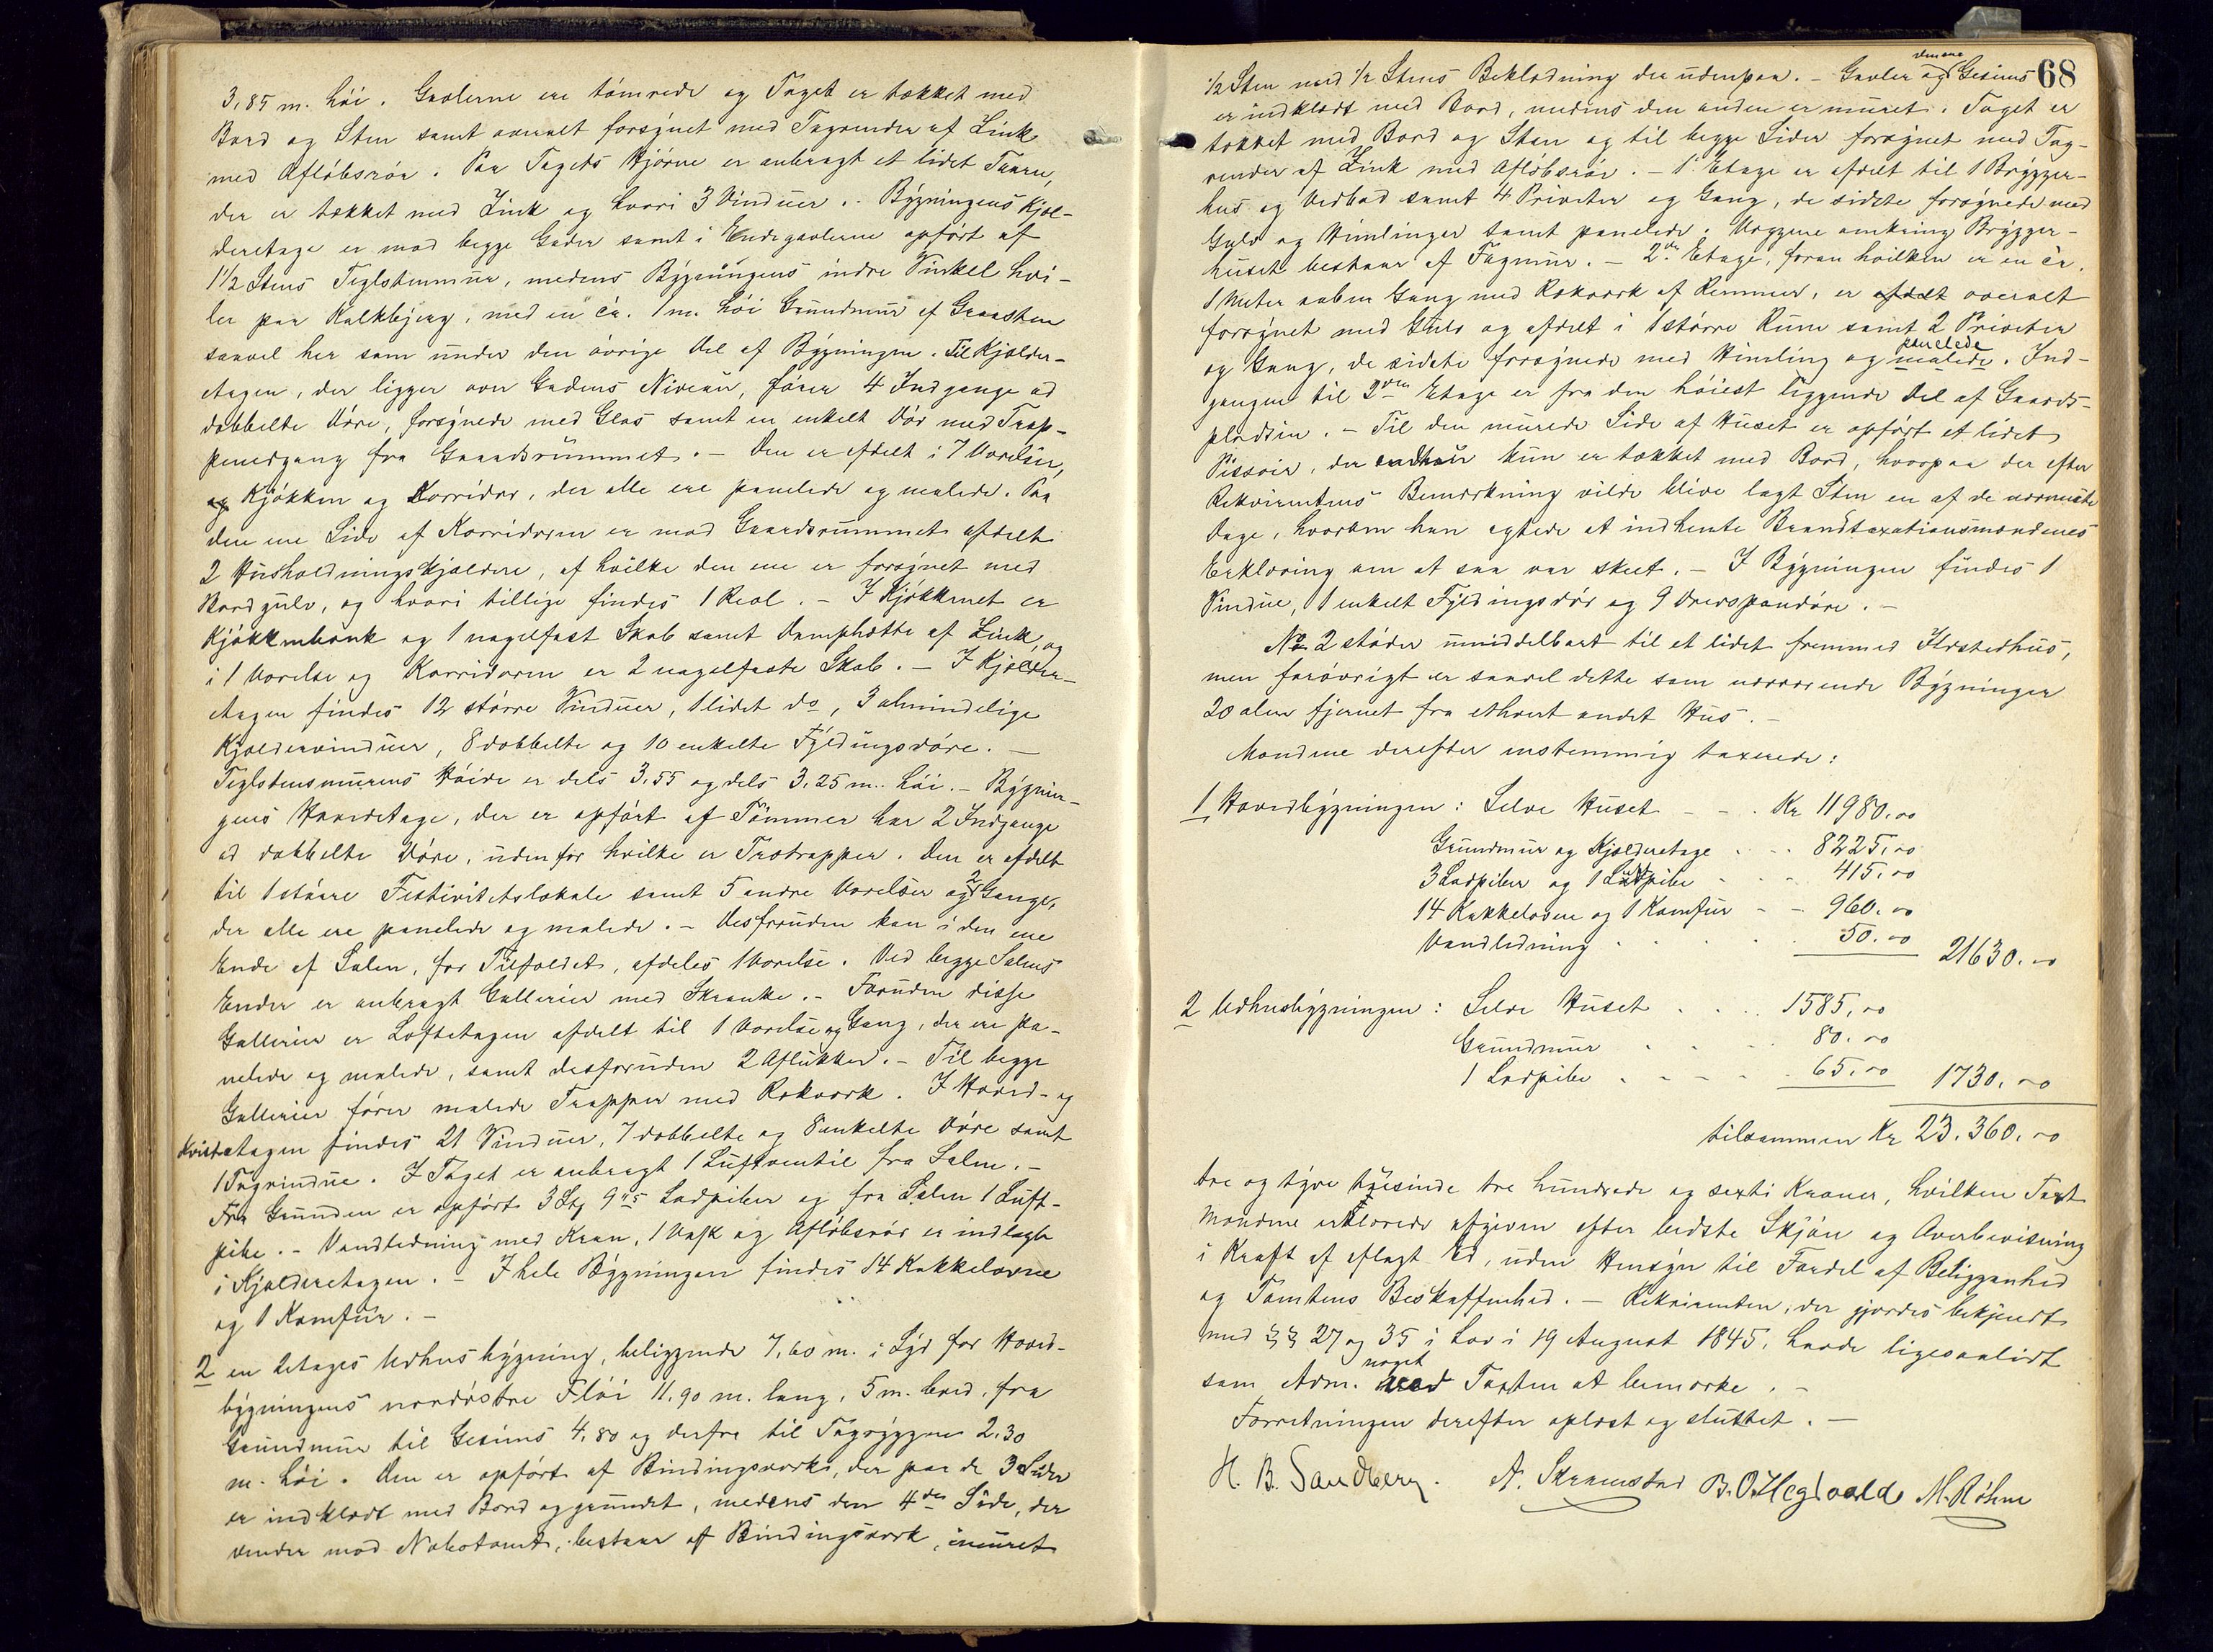 3,85 m. høi. Gavlerne ere tømrede og Taget er tækket med
Bord og Sten samt overalt forsynet med Tagrender af Zink
med Afløbsrør. Paa Tagets Hjørne er anbragt et lidet Taarn,
der er tækket med Zink og hvori 3 Vinduer. - Bygningens Kjæl-
deretage er mod begge Gader samt i Endegavlerne opført af
1 1/2 Stens Teglstensmur, medens Bygningens indre Vinkel hvi-
ler paa Kalkbjerg, med en ca. 1 m. høi Grundmur af Graasten
saavel her som under den øvrige Del af Bygningen. Til Kjælder-
etagen, der ligger over Gadens Niveau, fører 4 Indgange ad
dobbelte Døre, forsynede med Glas samt en enkelt Dør med Trap-
penedgang fra Gaardsrummet. - Den er afdelt i 7 Værelser,
Kjøkken og Korridor, der alle ere panelede og malede. Paa
den ene Side af Korridoren er mod Gaardsrummet afdelt
2 Husholdningskjældere, af hvilke den ene er forsynet med
Bordgulv, og hvori tillige findes 1 Reol. - I Kjøkkenet er
Kjøkkenbænk og 1 nagelfast Skab samt Damphætte af Zink, og
i 1 Værelse og Korridoren er 2 nagelfaste Skab. - I Kjælder-
etagen findes 12 større Vinduer, 1 lidet do, 3 almindelige
Kjældervinduer, 8 dobbelte og 10 enkelte Fyldingsdøre. -
Teglstensmurens Høide er dels 3,55 og dels 3,25 m. høi. - Bygnin-
gens Hovedetage, der er opført af Tømmer har 2 Indgange
ad dobbelte Døre, udenfor hvilke er Trætrapper. Den er afdelt
til 1 større Festivitetslokale samt 5 andre Værelser og 2 Gange,
der alle ere panelede og malede. - Desforuden kan i den ene
Ende af Salen, for Tilfældet, afdeles 1 Værelse. Ved begge Salens
Ender er anbragt Gallerier med Skranke. - Foruden disse
Gallerier er Loftetagen afdelt til 1 Værelse og Gang, der ere pa-
nelede og malede, samt desforuden 2 Aflukker. - Til begge
Gallerier fører malede Trapper med Rækværk. I Hoved- og
Kvistetagen findes 21 Vinduer, 7 dobbelte og 8 enkelte Døre samt
1 Tagvindue. I Taget er anbragt 1 Luftventil fra Salen. -
Fra Grunden er opført 3 Stk 9" Ladpiber og fra Salen 1 Luft-
pibe. - Vandledning med Kran, 1 Vask og Afløbsrør er indlagt
i Kjælderetagen. - I hele Bygningen findes 14 Kakkelovne
og 1 Komfur. -
2 en 2etages Udhusbygning, beliggende 7,60 m. i Syd for Hoved-
bygningens nordøstre Fløi 11,90 m. lang, 5 m. bred, fra
Grundmur til Gesims 4,80 og derfra til Tagryggen 2,30
m. høi. Den er opført af Bindingsværk, der paa de 3 Sider
er indklædt med Bord og grundet, medens den 4de Side, der
vender mod Nabotomt, bestaar af Bindingsværk, inmuret
68
1/2 Sten med 1/2 Stens Beklædning der udenpaa. - Gavler og Gesims
er indklædt med Bord, medens den anden er muret. Taget er
tækket med Bord og Sten og til begge Sider forsynet med Tag-
render af Zink med Afløbsrør. - 1. Etage er afdelt til 1 Brygger-
hus og Vedbod samt 4 Priveter og Gang, de sidste forsynede med
Gulv og Himlinger samt panelede. Væggene omkring Brygger-
huset bestaar af Fagmur. - 2den Etage, foran hvilken er en ca.
1 Meter aaben Gang med Rækværk af Remmer, er afdelt overalt
forsynet med Gulv og afdelt i 1 større Rum samt 2 Priveter
og Gang, de sidste forsynede med Himling og malede panelede. Ind-
gangen til 2den Etage er fra den høiest liggende Del af Gaards-
pladsen. - Til den murede Side af Huset er opført et lidet
Pissoir, der endnu kun er tækket med Bord, hvorpaa der efter
Rekvirentens Bemærkning vilde blive lagt Sten en af de nærmeste
Dage, hvorom han agtede at indhente Brandtaxationsmændenes
Erklæring om at saa var skeet. - I Bygningen findes 1
Vindue, 1 enkelt Fyldingsdør og 9 Drevspandøre. -
No 2 støder umiddelbart til et lidet fremmed Ildstedhus,
men forøvrigt er saavel dette som nærværende Bygninger
20 alen fjernet fra ethvert andet Hus. -
Mændene derefter enstemmig taxerede:
1 Hovedbygningen: Selve Huset - - Kr 11980,00
Grundmur og Kjælderetage - - 8225,00
3 Ladpiber og 1 Luftpibe - - 415,00
14 Kakkelovne og 1 Komfur - - 960,00
Vandledning - - 50,00 21630,00
2 Udhusbygningen: Selve Huset - - 1585,00
Grundmur - - 80,00
1 Ladpibe - - 65,00 1730,00
tilsammen Kr 23.360,00
tre og tyve tusinde tre hundrede og sexti Kroner, hvilken Taxt
Mændene erklærede afgiven efter bedste Skjøn og Overbevisning
i Kraft af aflagt Ed, uden Hensyn til Fordel af Beliggenhed
og Tomtens Beskaffenhed. - Rekvirenten, der gjordes bekjendt
med §§ 27 og 35 i Lov i 19 August 1845, havde ligesaalidt
som Adm. noget ved Taxten at bemærke. -
Forretningen derefter oplæst og sluttet. -
H. B. Sandberg. A. Skramstad B. O. Hegvold M. Røhne